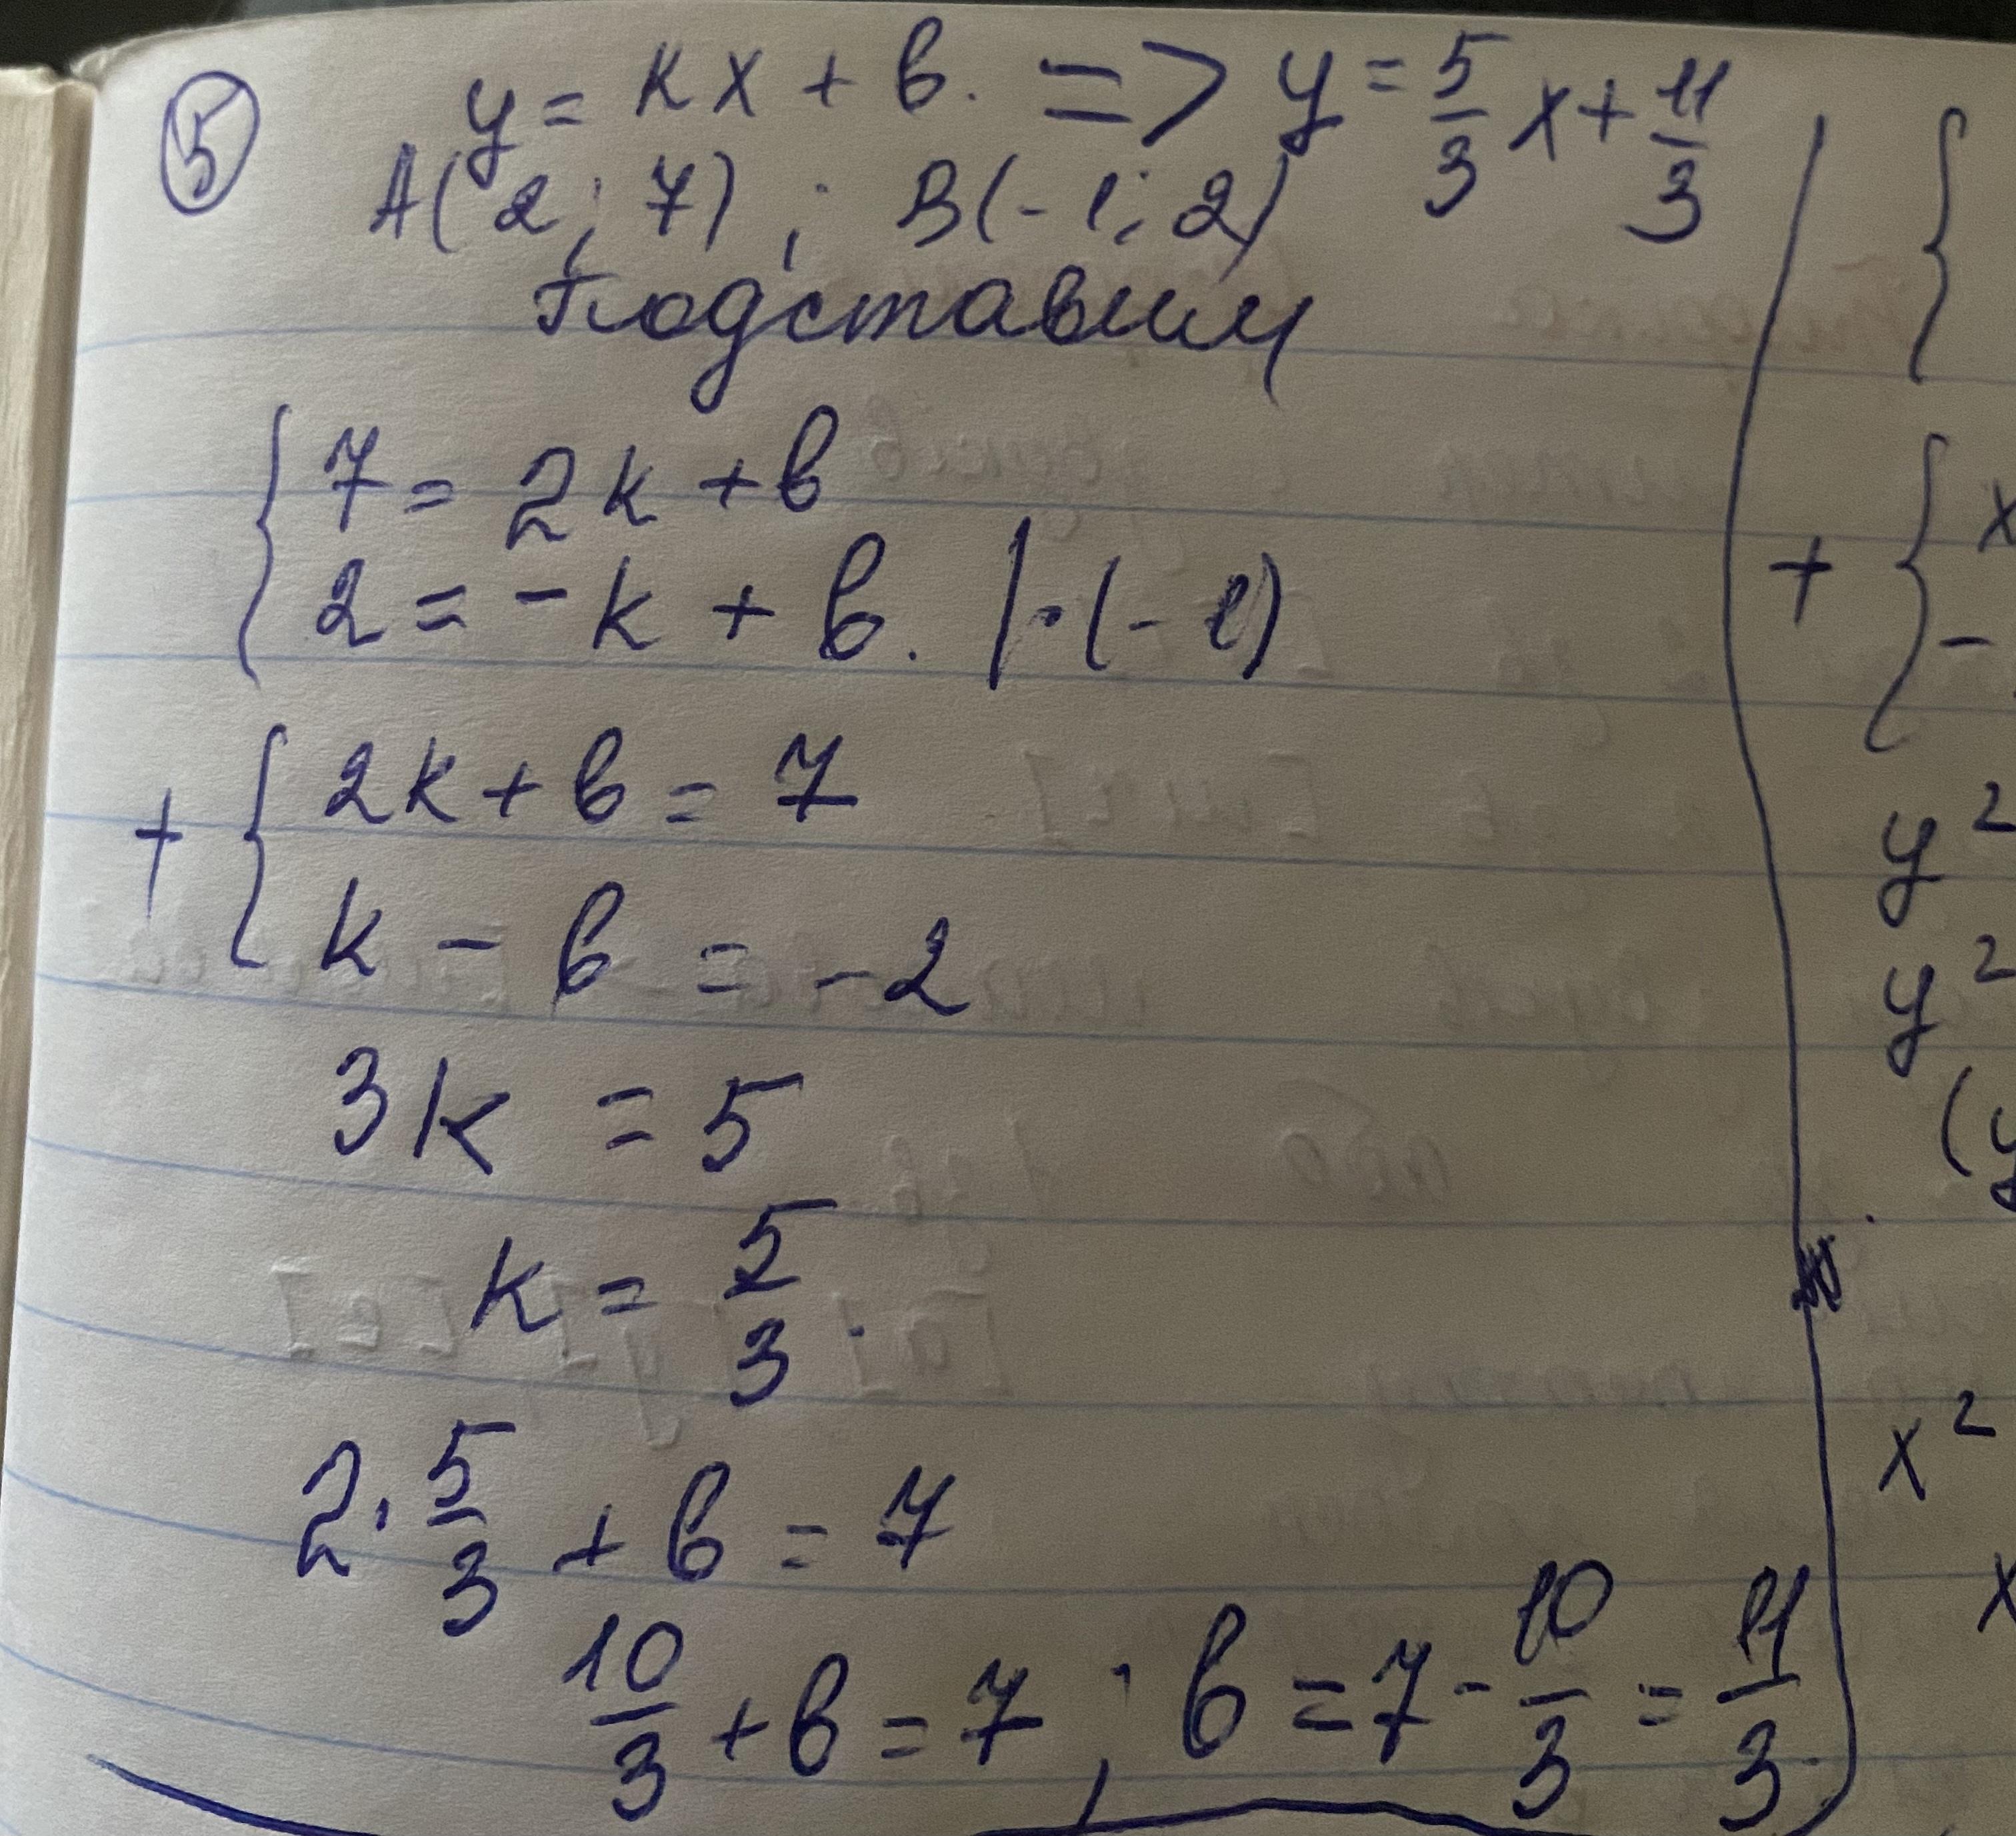 ⑤ y = kx + b. => y = 5/3 x + 11/3
A(2; 7); B(-1; 2)
Подставим
{ 7 = 2k + b
2 = -k + b. | · (-1)
+ { 2k + b = 7
k - b = -2
3k = 5
k = 5/3.
2 · 5/3 + b = 7
10/3 + b = 7; b = 7 - 10/3 = 11/3
{
+ { x
-
y²
y²
(y
x²
x